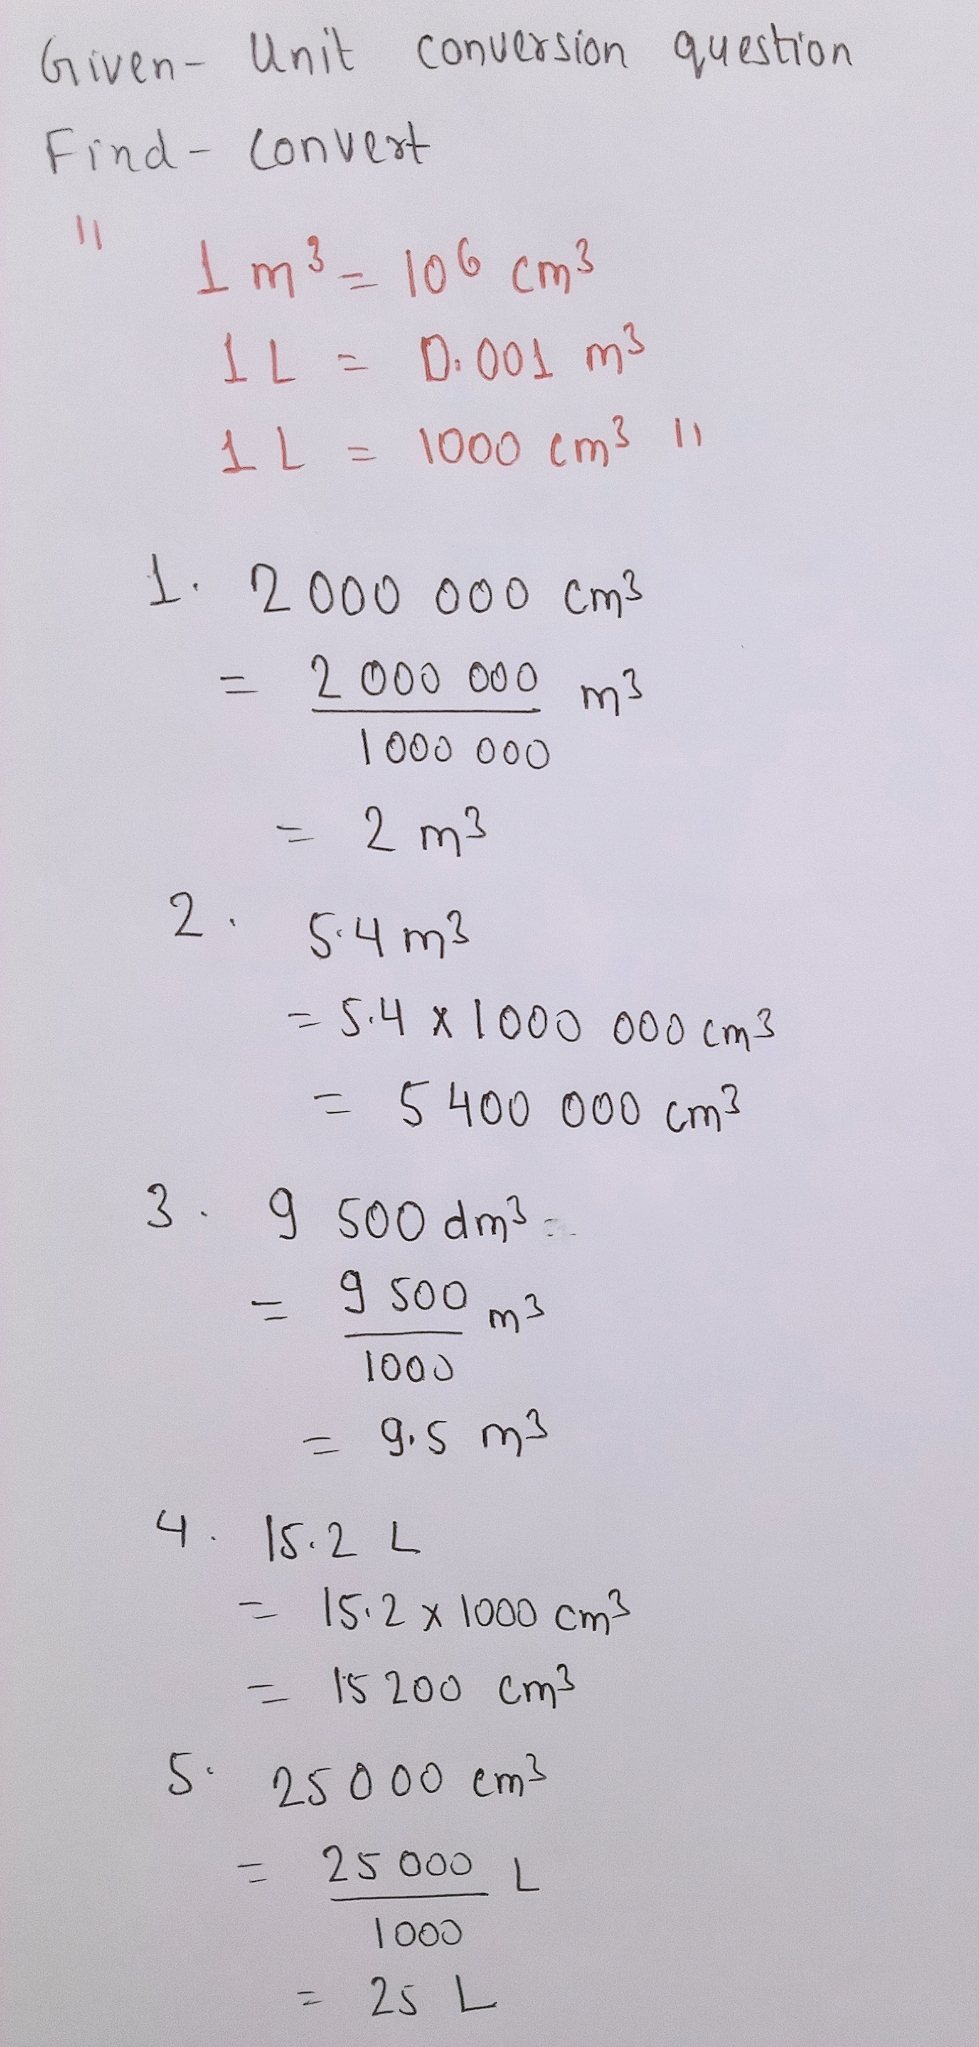 Given- Unit conversion question
Find- Convert
" 1 m³ = 10⁶ cm³
1 L = 0.001 m³
1 L = 1000 cm³ "
1. 2 000 000 cm³
= 2 000 000 m³
1 000 000
= 2 m³
2. 5.4 m³
= 5.4 x 1000 000 cm³
= 5 400 000 cm³
3. 9 500 dm³
= 9 500 m³
1000
= 9.5 m³
4. 15.2 L
= 15.2 x 1000 cm³
= 15 200 cm³
5. 25 000 cm³
= 25 000 L
1000
= 25 L